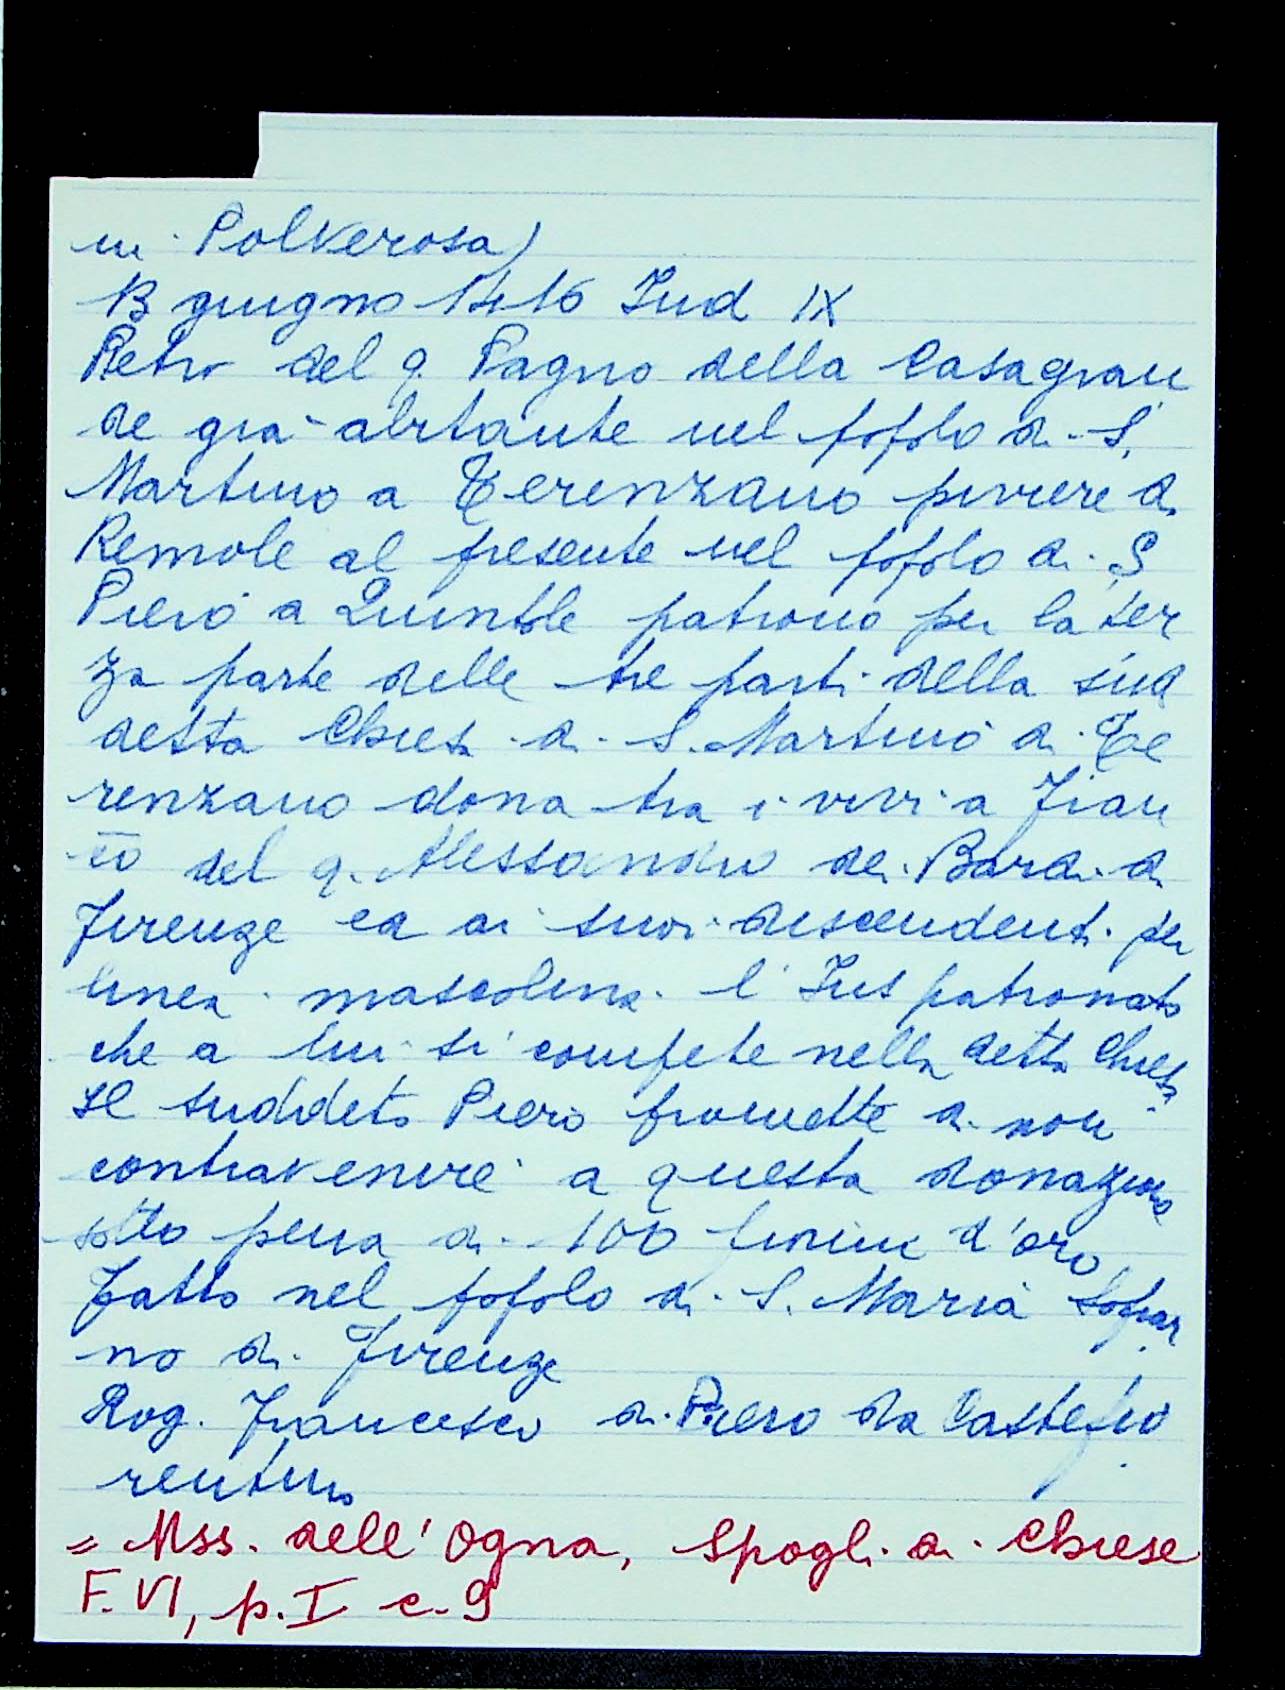 in Polverosa)
13 giugno 1416 Ind IX
Petro del q. Pagno della Casagran
de già abitante nel popolo di S.
Martino a Terenzano piviere di
Remole al presente nel popolo di S
Piero a Quintole patrono per la ter
za parte delle tre parti della sud
detta Chiesa di S. Martino di Te
renzano dona tra i vivi a Fran
co del q. Alessandro dei Bardi di
Firenze ed ai suoi discendenti per
linea mascolina l'Jus patronato
che a lui si compete nella detta Chiesa
Il suddetto Piero promette di non
contravenire a questa donazione
sotto pena di 100 fiorini d'oro
Fatto nel popolo di S. Maria Soprar
no di Firenze
Rog. Francesco di Piero da Castelfio
rentino
= Mss. dell'Ogna, Spogli di Chiese
F. VI, p. I c. 9